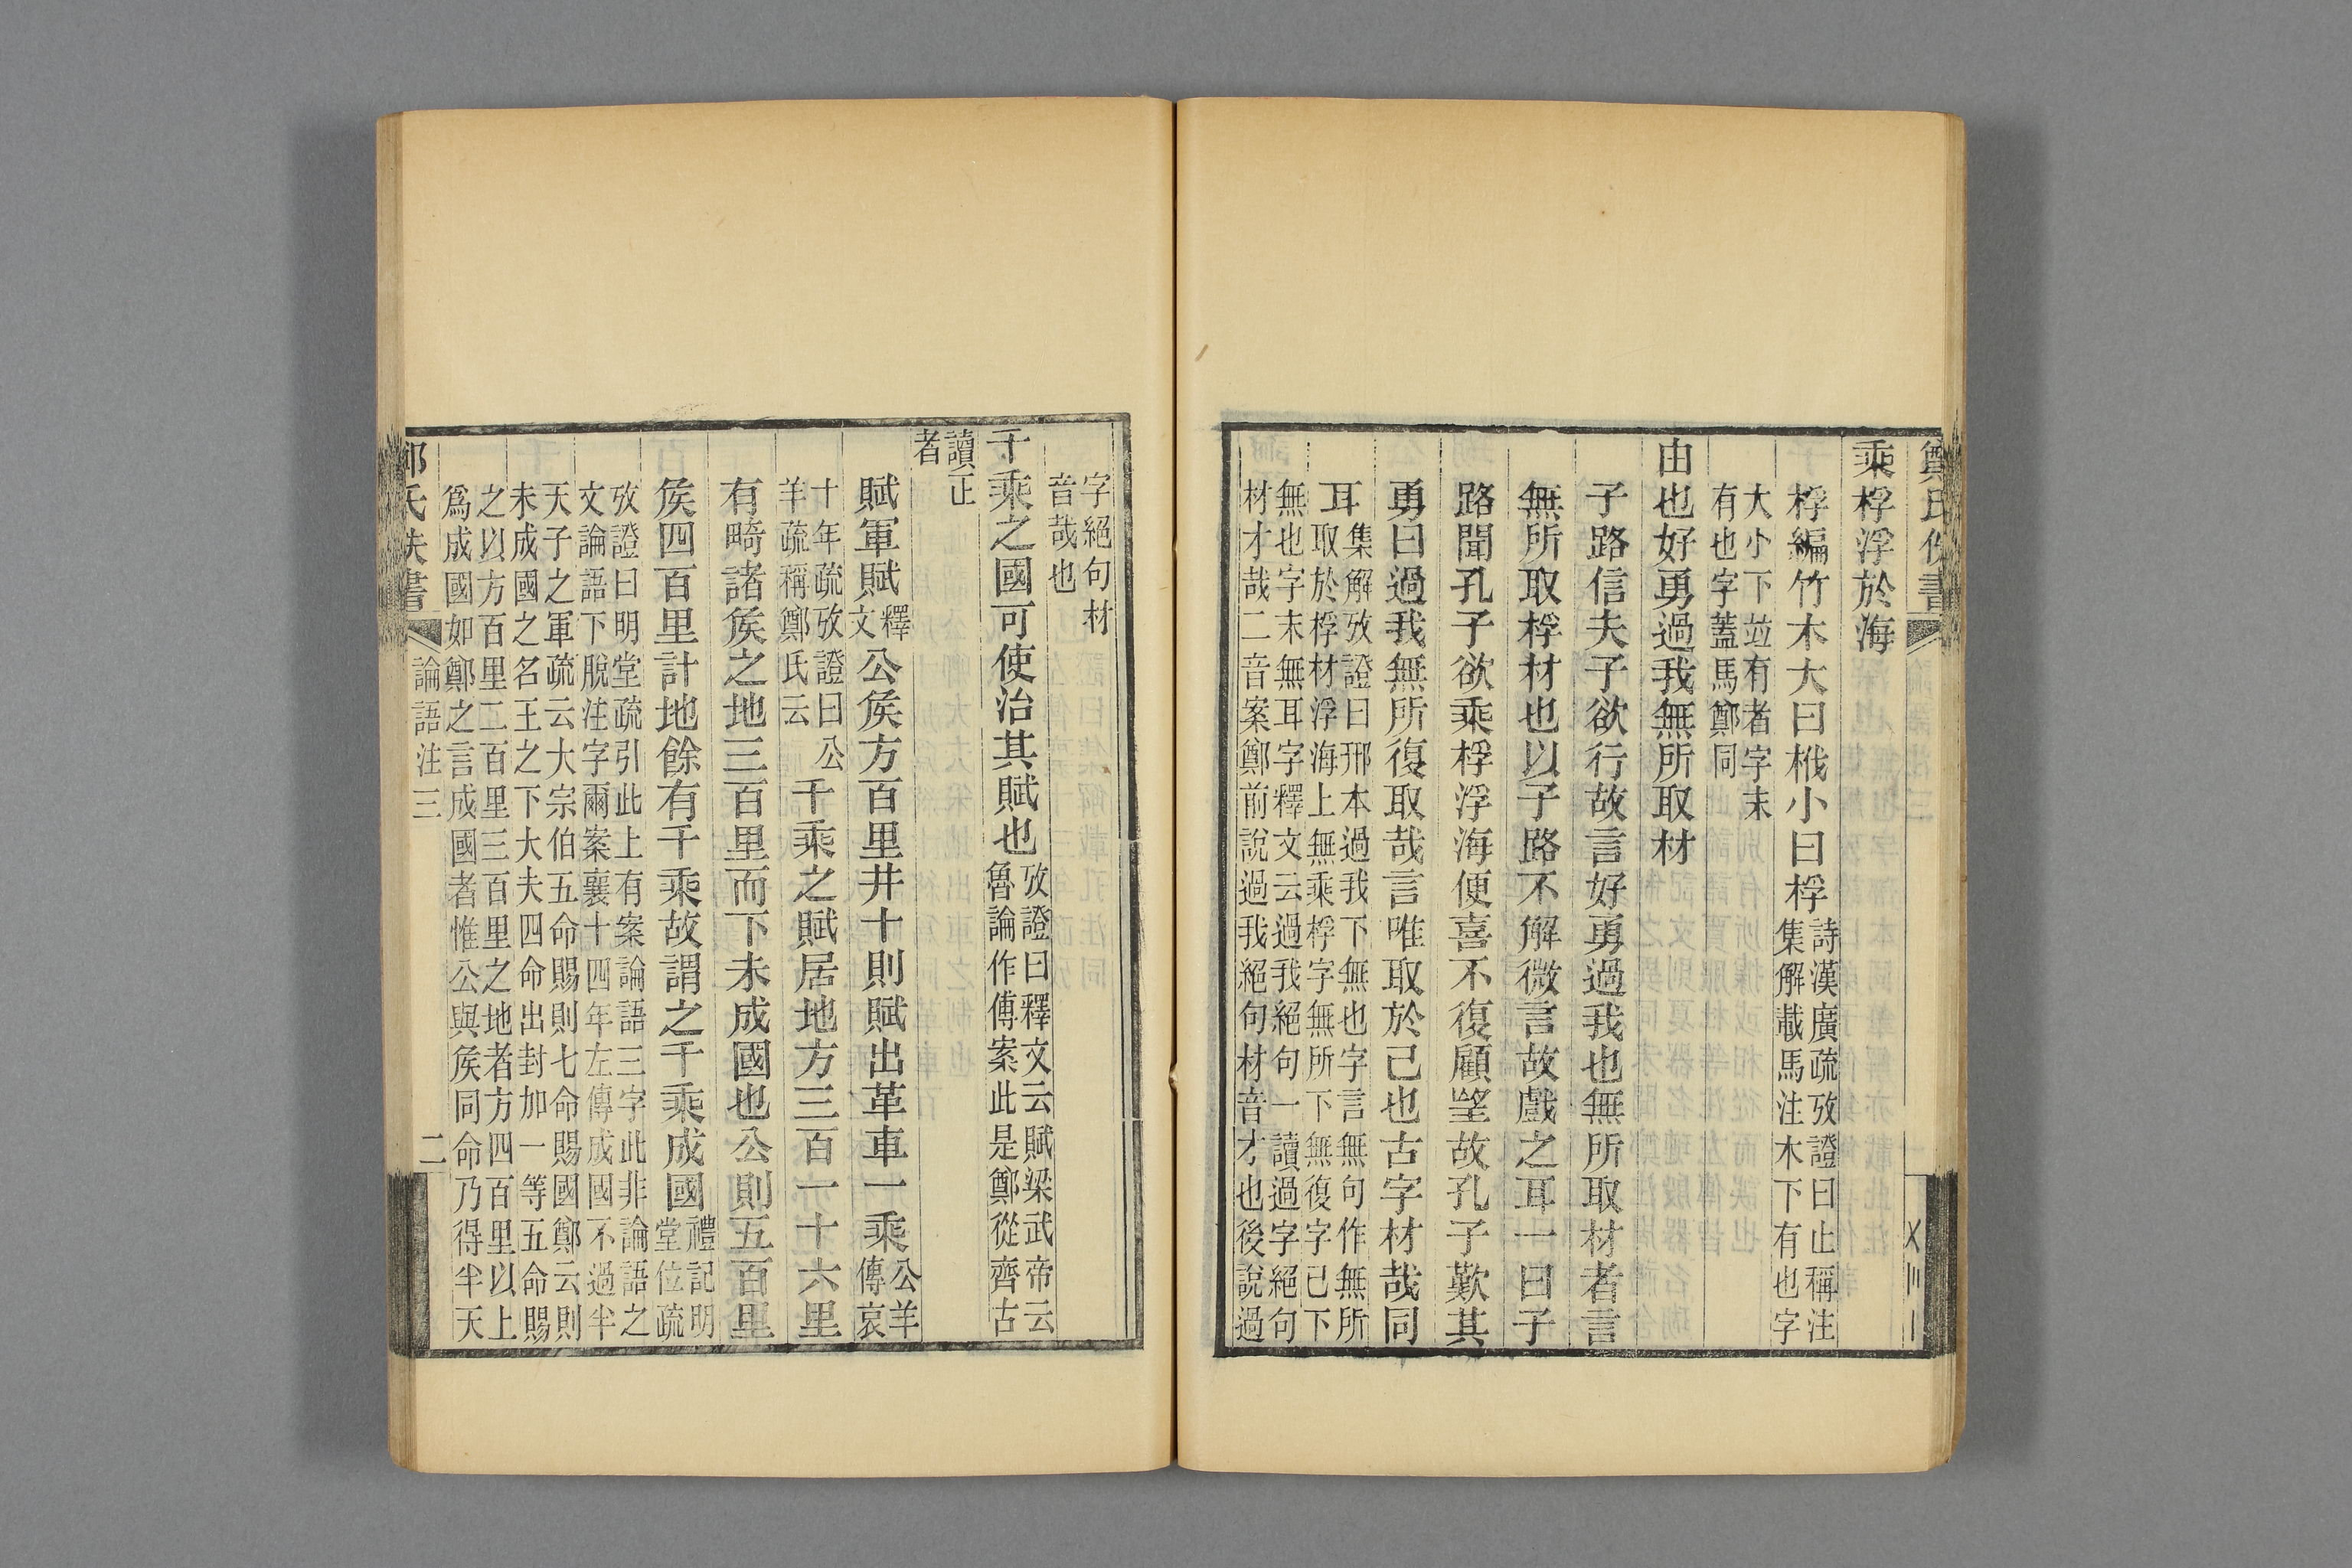 乘桴浮於海
桴編竹木大曰栰小曰桴詩漢廣疏攷證曰止稱注
集解載馬注木下有也字
大小下竝有者字末
有也字蓋馬鄭同
由也好勇過我無所取材
子路信夫子欲行故言好勇過我也無所取材者言
無所取桴材也以子路不解微言故戲之耳一曰子
路聞孔子欲乘桴浮海便喜不復顧望故孔子歎其
勇曰過我無所復取哉言唯取於己也古字材哉同
耳集解攷證曰邢本過我下無也字言無句作無所
取於桴材浮海上無乘桴字無所下無復字己下
無也字末無耳字釋文云過我絕句一讀過字絕句
材才哉二音案鄭前說過我絕句材音才也後說過
字絕句材
音哉也
千乘之國可使治其賦也攷證曰釋文云賦梁武帝云
魯論作傅案此是鄭從齊古
讀正
者
賦軍賦釋
文公矦方百里井十則賦出革車一乘公羊
傳哀
十年疏攷證曰公
羊疏稱鄭氏云千乘之賦居地方三百一十六里
有畸諸矦之地三百里而下未成國也公則五百里
矦四百里計地餘有千乘故謂之千乘成國禮記明
堂位疏
攷證曰明堂疏引此上有案論語三字此非論語之
文論語下脫注字爾案襄十四年左傳成國不過半
天子之軍疏云大宗伯五命賜則七命賜國鄭云則
未成國之名王之下大夫四命出封加一等五命賜
之以方百里二百里三百里之地者方四百里以上
爲成國如鄭之言成國者惟公與矦同命乃得半天
論語注三
二